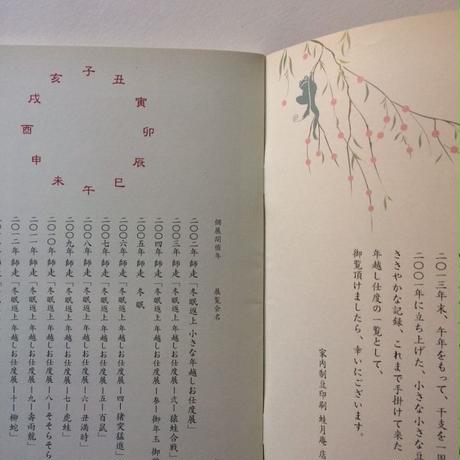 二〇一三年末、午年をもって、干支を一周
二〇〇一年に立ち上げた、小さな小さな豆
ささやかな記録、これまで手掛けて来た
年越し仕度の一覧として、
御覧頂けましたら、幸いにございます。
家内制豆印刷 蛙月庵 店
子
丑
寅
卯
辰
巳
午
未
申
酉
戌
亥
個展開催年 展覧会名
二〇〇二年 師走 「冬眠返上 小さな年越しお仕度展」
二〇〇三年 師走 「冬眠返上 年越しお仕度展ー弐ー猿蛙合戦」
師走 「冬眠返上 年越しお仕度展ー参ー御年玉
二〇〇五年 師走 冬眠
二〇〇六年 師走 「冬眠返上 年越しお仕度展ー四ー猪突猛進」
二〇〇七年 師走 「冬眠返上 年越しお仕度展ー五ー百鼠」
二〇〇八年 師走 「冬眠返上 年越しお仕度展ー六ー丑満時」
二〇〇九年 師走 「冬眠返上 年越しお仕度展ー七ー虎蛙」
二〇一〇年 師走 「冬眠返上 年越しお仕度展ー八ーそそらそら
二〇一一年 師走 「冬眠返上 年越しお仕度展ー九ー壽雨龍」
二〇一二年 師走 「冬眠返上 年越しお仕度展ー十ー柳蛇」